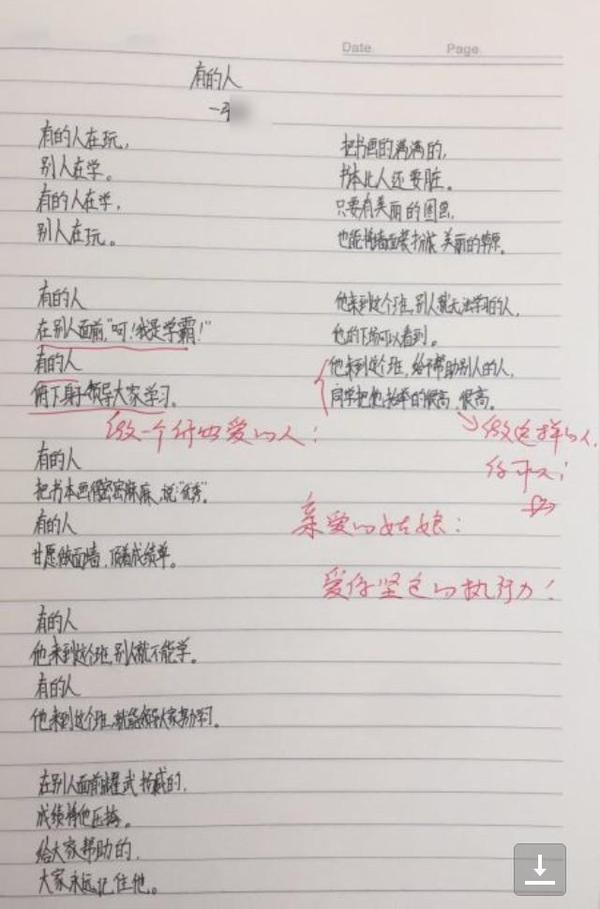 Date
Page
有的人
有的人在玩，
别人在学。
有的人在学，
别人在玩。
有的人
在别人面前，"呵！我是学霸！"
有的人
俯下身子领导大家学习。
做一个行地爱的人！
有的人
把书本画得密密麻麻，说"优秀"。
有的人
甘愿做面墙，顶着成绩单。
有的人
他来到这个班，别人就不能学。
有的人
他来到这个班，就能领导大家努力学习。
在别人面前耀武扬威的，
成绩将他压垮。
给大家帮助的，
大家永远记住他。
把书画的满满的，
书本比人还要脏。
只要有美丽的图案，
也能将墙面装扮成美丽的草原。
他来到这个班，别人就无法学习的人，
他的下场可以看到。
他来到这个班，给予帮助别人的人，
同学把他抬举的很高，很高。
做这样的人，
亲爱的姑娘：
爱你坚定的执行力！